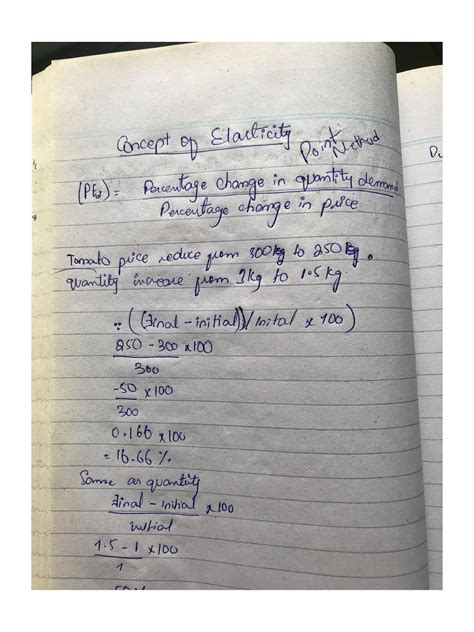 Concept of Elasticity
Point Method
(PEd) = Percentage change in quantity demand
Percentage change in price
Tomato price reduce from 300kg to 250kg,
quantity increase from 1kg to 1.5kg
∵ ((Final - initial))/Inital x 100)
250 - 300 x100
300
-50 x100
300
0.166 x100
= 16.66 %.
Same as quantity
Final - initial x 100
initial
1.5 - 1 x100
1